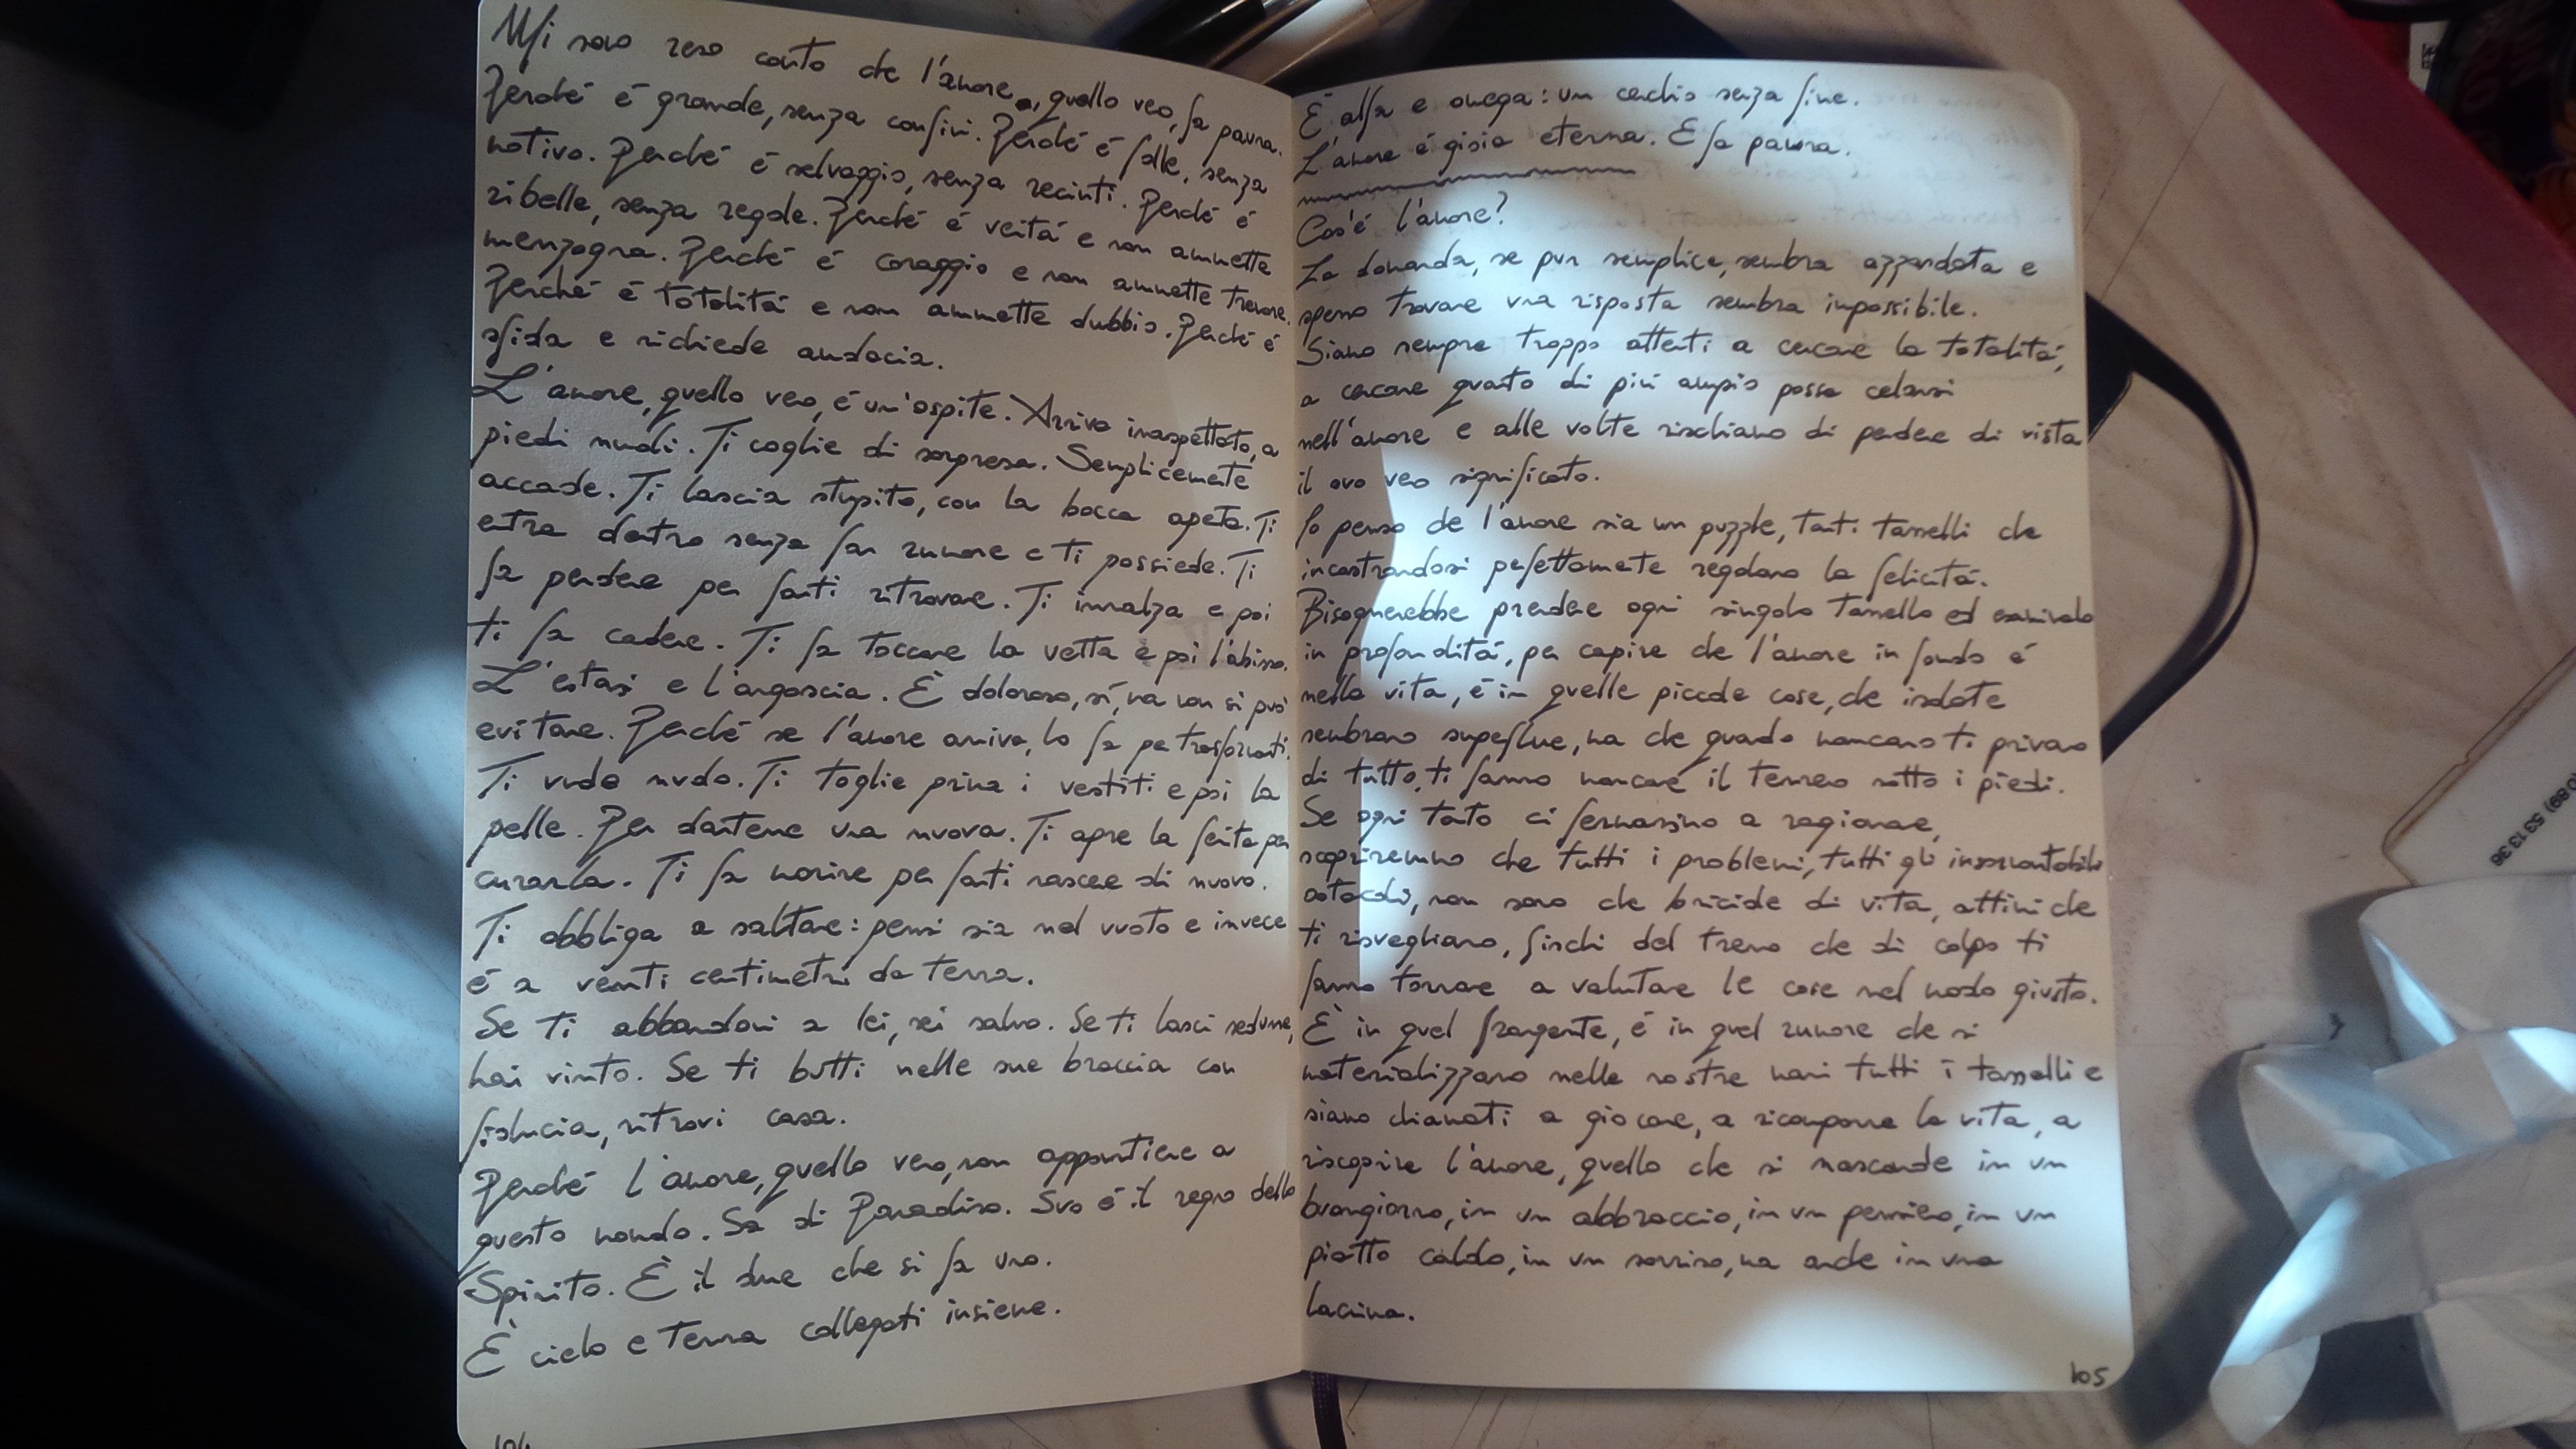 Mi sono reso conto che l'amore, quello vero, fa paura.
Perché è grande, senza confini. Perché è folle, senza
motivo. Perché è selvaggio, senza recinti. Perché è
ribelle, senza regole. Perché è verità e non ammette
menzogna. Perché è coraggio e non ammette tremore.
Perché è totalità e non ammette dubbio. Perché è
sfida e richiede audacia.
L'amore, quello vero, è un'ospite. Arriva inaspettato, a
piedi nudi. Ti coglie di sorpresa. Semplicemente
accade. Ti lascia stupito, con la bocca aperta. Ti
entra dentro senza far rumore e ti possiede. Ti
fa perdere per farti ritrovare. Ti innalza e poi
ti fa cadere. Ti fa toccare la vetta e poi l'abisso.
L'estasi e l'angoscia. È doloroso, sì, ma non si può
evitare. Perché se l'amore arriva, lo fa per trasformarti.
Ti vuole nudo. Ti toglie prima i vestiti e poi la
pelle. Per dartene una nuova. Ti apre la ferita per
curarla. Ti fa morire per farti nascere di nuovo.
Ti obbliga a saltare: pensi sia nel vuoto e invece
è a venti centimetri da terra.
Se ti abbandoni a lei, sei salvo. Se ti lasci sedurre,
hai vinto. Se ti butti nelle sue braccia con
fiducia, ritrovi casa.
Perché l'amore, quello vero, non appartiene a
questo mondo. Sa di Paradiso. Suo è il regno dello
Spirito. È il due che si fa uno.
È cielo e terra collegati insieme.
104
È alfa e omega: un cerchio senza fine.
L'amore è gioia eterna. E fa paura.
Cos'è l'amore?
La domanda, se pur semplice, sembra azzardata e
spesso trovare una risposta sembra impossibile.
Siamo sempre troppo attenti a cercare la totalità,
a cercare quanto di più ampio possa celarsi
nell'amore e alle volte rischiamo di perdere di vista
il suo vero significato.
Io penso che l'amore sia un puzzle, tanti tasselli che
incastrandosi perfettamente regalano la felicità.
Bisognerebbe prendere ogni singolo tassello ed esaminarlo
in profondità, per capire che l'amore in fondo è
nella vita, è in quelle piccole cose, che isolate
sembrano superflue, ma che quando mancano ti privano
di tutto, ti fanno mancare il terreno sotto i piedi.
Se ogni tanto ci fermassimo a ragionare,
scopriremmo che tutti i problemi, tutti gli insormontabili
ostacoli, non sono che briciole di vita, attimi che
ti risvegliano, fischi del treno che di colpo ti
fanno tornare a valutare le cose nel modo giusto.
È in quel frangente, è in quel rumore che si
materializzano nelle nostre mani tutti i tasselli e
siamo chiamati a giocare, a ricomporre la vita, a
riscoprire l'amore, quello che si nasconde in un
buongiorno, in un abbraccio, in un pensiero, in un
piatto caldo, in un sorriso, ma anche in una
lacrima.
105
53 13 36